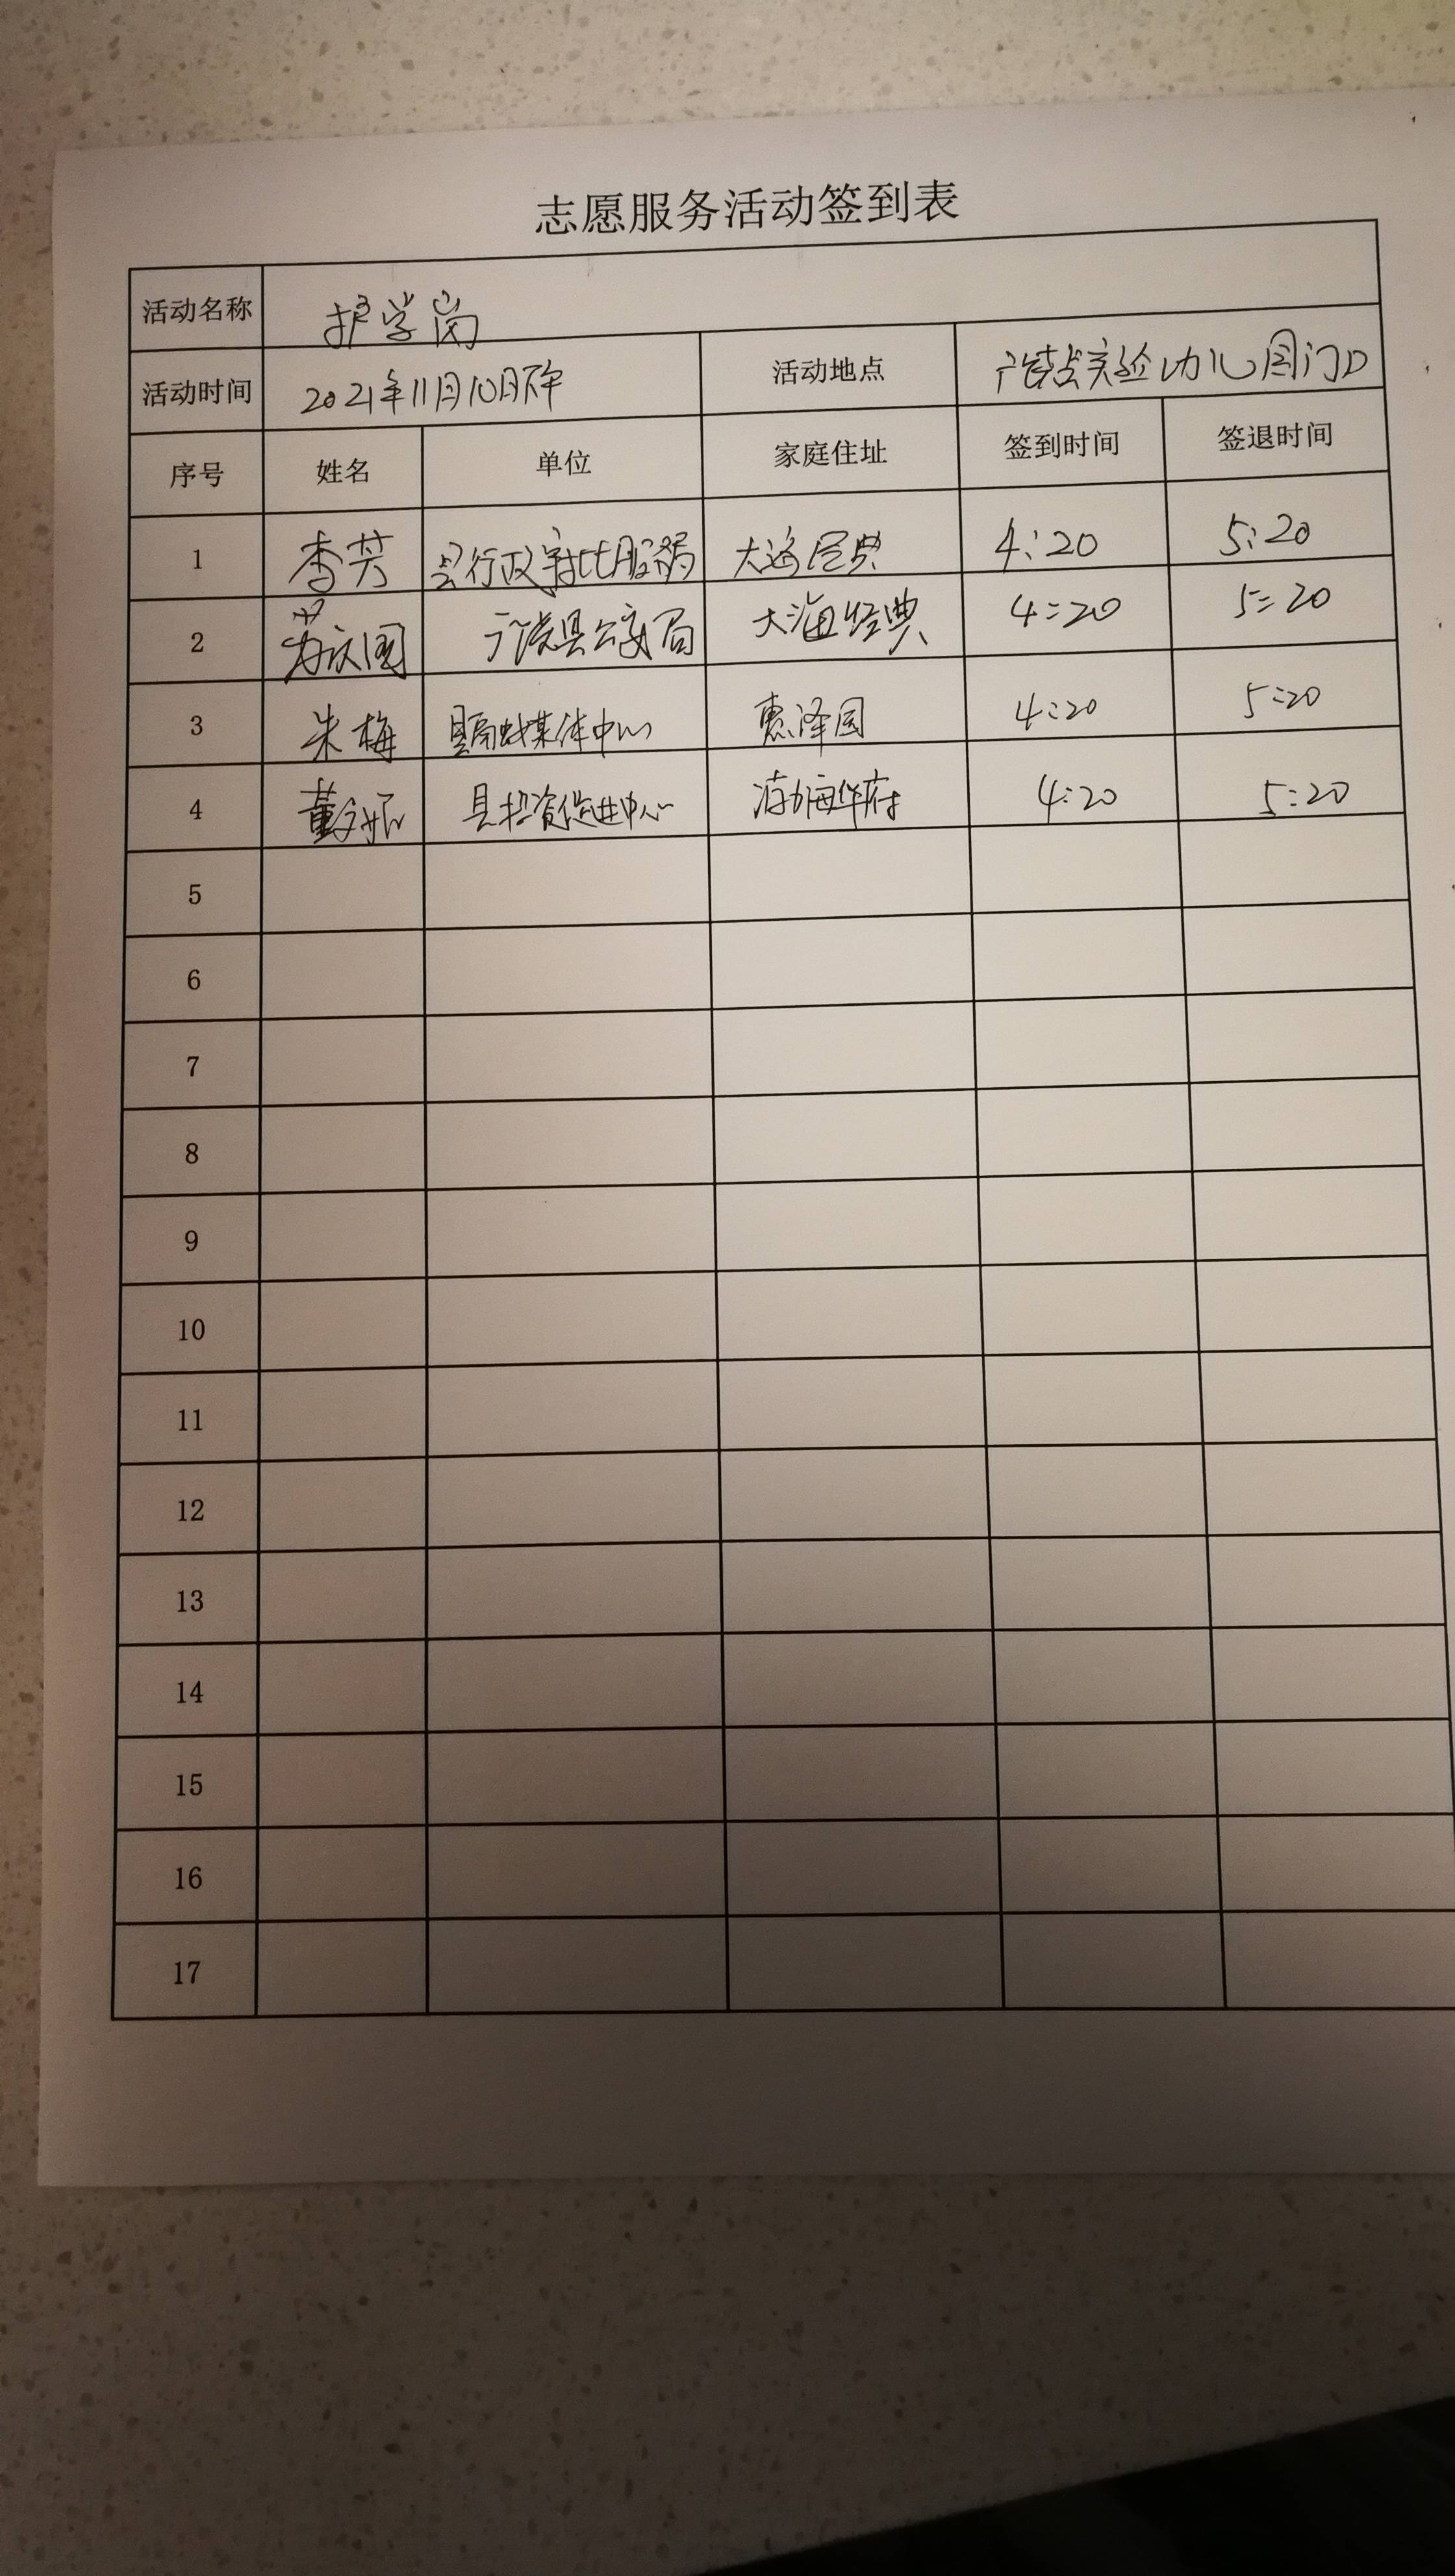 志愿服务活动签到表
活动名称 护学岗
活动时间 2021年11月10日下午 活动地点 实验幼儿园门口
序号 姓名 单位 家庭住址 签到时间 签退时间
1 李芳 县行政审批服务局 大海经典 4:20 5:20
2 广饶县公安局 大海经典 4:20 5:20
3 朱梅 县融媒体中心 惠泽园 4:20 5:20
4 董 县投资促进中心 渤海华府 4:20 5:20
5
6
7
8
9
10
11
12
13
14
15
16
17